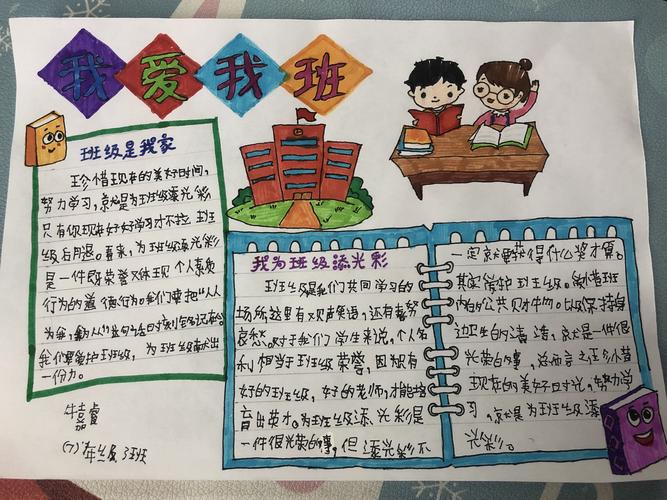 我爱我班
班级是我家
珍惜现在的美好时间，
努力学习，就是为班级添光彩
只有你现在好好学习才不拉班
级后腿。再来，为班级添光彩
是一件既荣誉又体现个人素质
行为的道德行为。我们要把"人人
为我，我为人人"这句话时刻牢记
我们要爱护班级，为班级献出
一份力。
(7)年级3班
我为班级添光彩
班级是我们共同学习的
场所这里有欢声笑语，还有喜怒
哀愁。对于我们学生来说，个人名
利相当于班级荣誉，因为只有
好的班级，好的老师，才能培
育出英才。为班级添光彩是
一件很光荣的事，但添光彩不
一定就要获得什么奖才算。
其实爱护班级。珍惜班
内的公共财物。以及保持自
身边卫生的清洁，就是一件很
光荣的事，总而言之珍惜
现在的美好时光，努力学
习，就是为班级添
光彩。